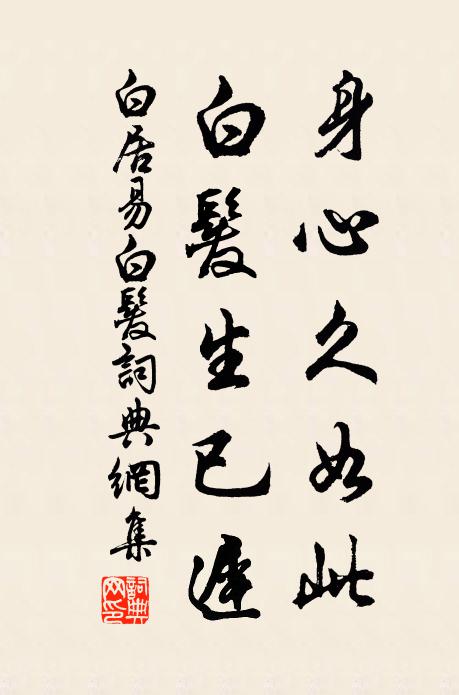 身心久如此
白髮生已遲
白居易白髮詞典網集
詞典網印